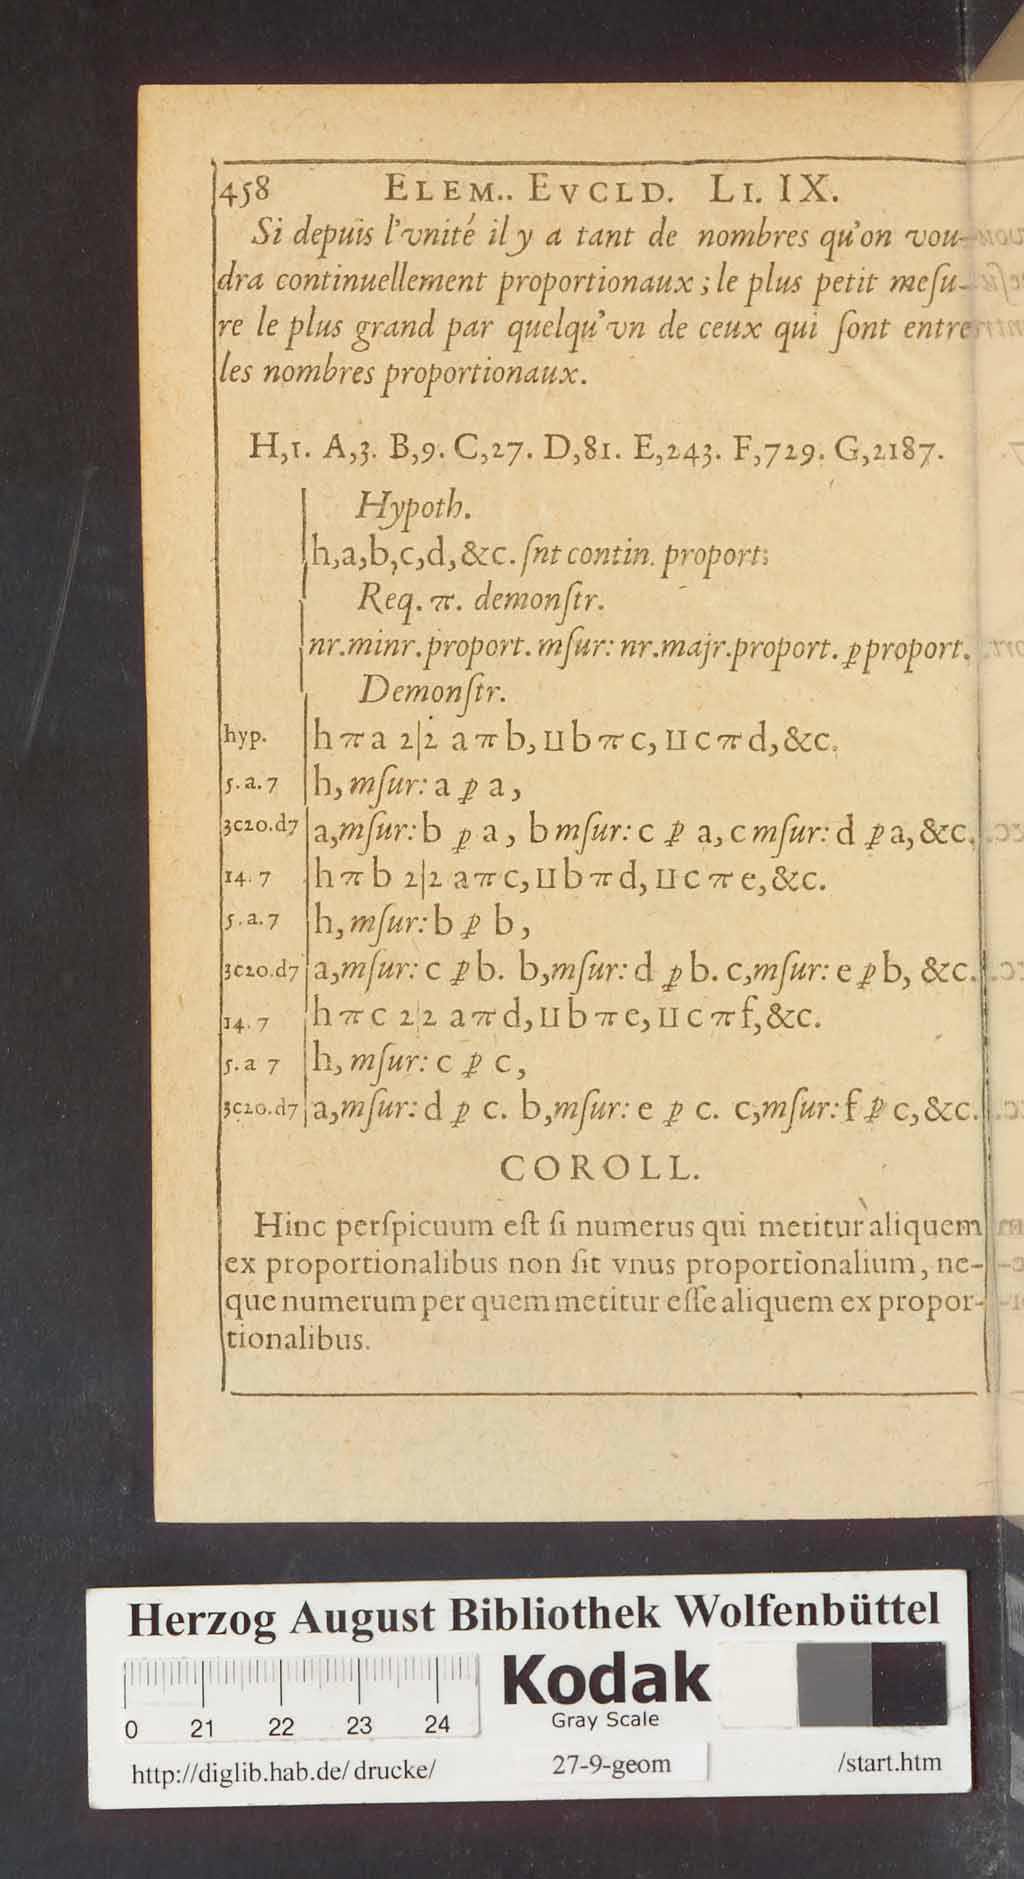 458 ELEM.. EVCLD. LI. IX.
Si depuis l'vnité il y a tant de nombres qu'on vou-
dra continuellement proportionaux ; le plus petit meſu-
re le plus grand par quelqu'vn de ceux qui ſont entre
les nombres proportionaux.
H,1. A,3. B,9. C,27. D,81. E,243. F,729. G,2187.
Hypoth.
h,a,b,c,d,&c. ſnt contin. proport:
Req. π. demonſtr.
nr.minr.proport. mſur: nr.majr.proport. ꝑ proport.
Demonſtr.
hyp. h π a 2|2 a π b, ⊔ b π c, ⊔ c π d, &c.
5. a. 7 h, mſur: a ꝑ a,
3c20.d7 a, mſur: b ꝑ a, b mſur: c ꝑ a, c mſur: d ꝑ a, &c.
14. 7 h π b 2|2 a π c, ⊔ b π d, ⊔ c π e, &c.
5. a. 7 h, mſur: b ꝑ b,
3c20.d7 a, mſur: c ꝑ b. b, mſur: d ꝑ b. c, mſur: e ꝑ b, &c.
14. 7 h π c 2|2 a π d, ⊔ b π e, ⊔ c π f, &c.
5. a 7 h, mſur: c ꝑ c,
3c20.d7 a, mſur: d ꝑ c. b, mſur: e ꝑ c. c, mſur: f ꝑ c, &c.
COROLL.
Hinc perſpicuum eſt ſi numerus qui metitur aliquem
ex proportionalibus non ſit vnus proportionalium, ne-
que numerum per quem metitur eſſe aliquem ex propor-
tionalibus.
Herzog August Bibliothek Wolfenbüttel
Kodak
Gray Scale
0 21 22 23 24
http://diglib.hab.de/drucke/ 27-9-geom /start.htm